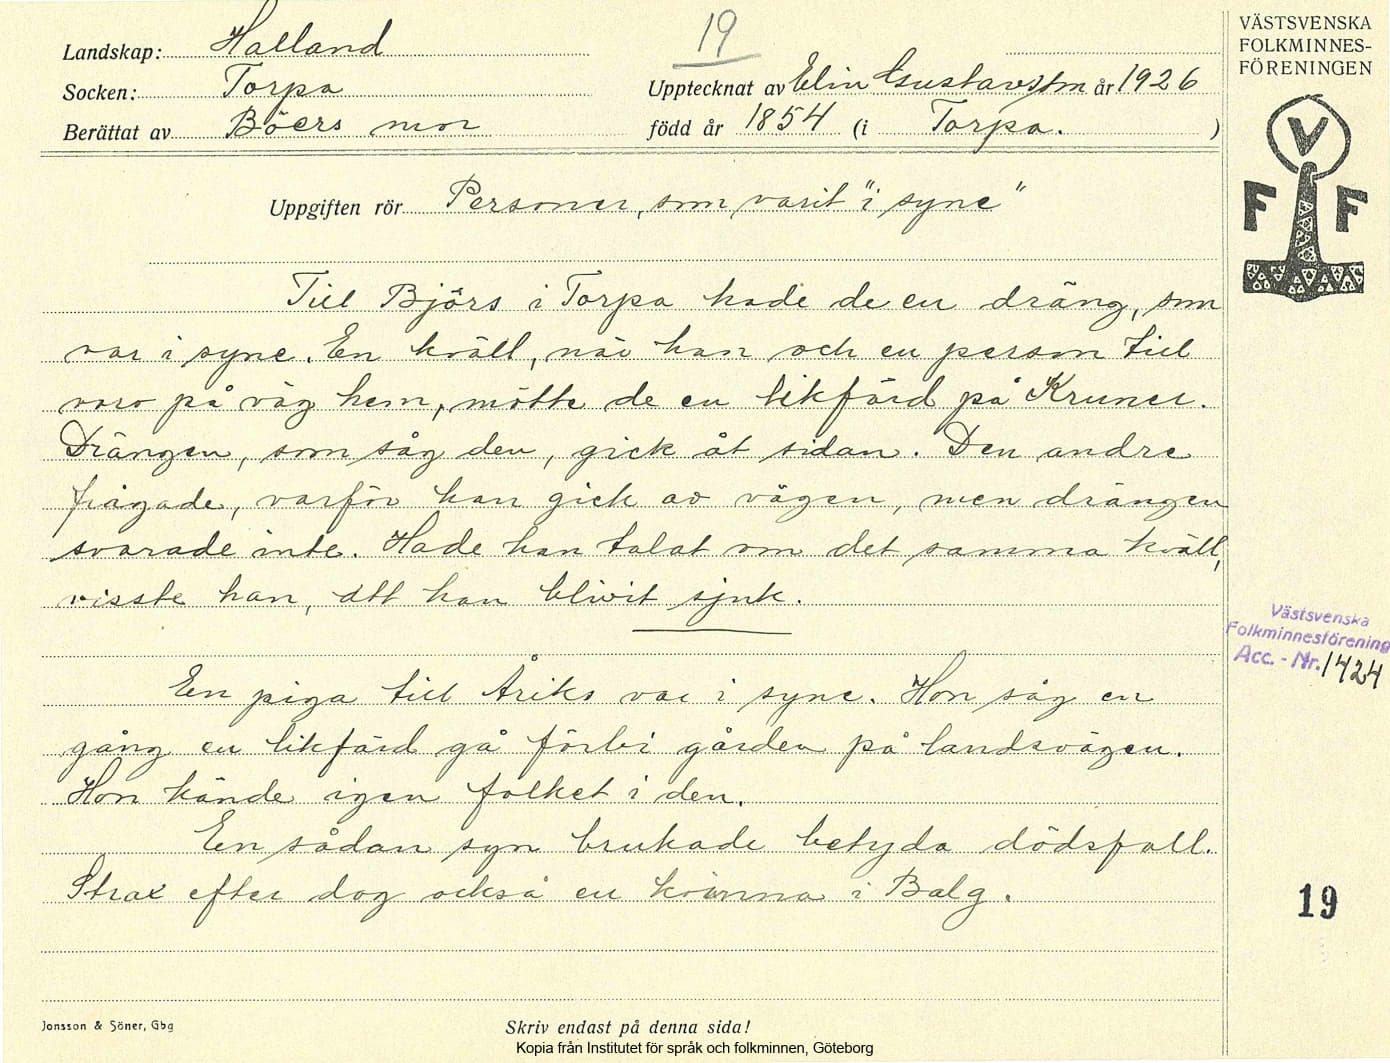 Landskap: Halland
19
Socken: Torpa
Upptecknat av Elin Gustavsson år 1926
Berättat av Böers mor
född år 1854 (i Torpa.)
Uppgiften rör Personer, som varit "i syne"
Till Björs i Torpa hade de en dräng, som
var i syne. En kväll, när han och en person till
voro på väg hem, mötte de en likfärd på Kruner.
Drängen, som såg den, gick åt sidan. Den andre
frågade, varför han gick av vägen, men drängen
svarade inte. Hade han talat om det samma kväll,
visste han, att han blivit sjuk.
En piga till Åriks var i syne. Hon såg en
gång en likfärd gå förbi gården på landsvägen.
Hon kände igen folket i den.
En sådan syn brukade betyda dödsfall.
Strax efter dog också en kvinna i Balg.
VÄSTSVENSKA
FOLKMINNES-
FÖRENINGEN
V
F F
Västsvenska
Folkminnesförening
Acc. - Nr. 1424
19
Jonsson & Söner, Gbg
Skriv endast på denna sida!
Kopia från Institutet för språk och folkminnen, Göteborg